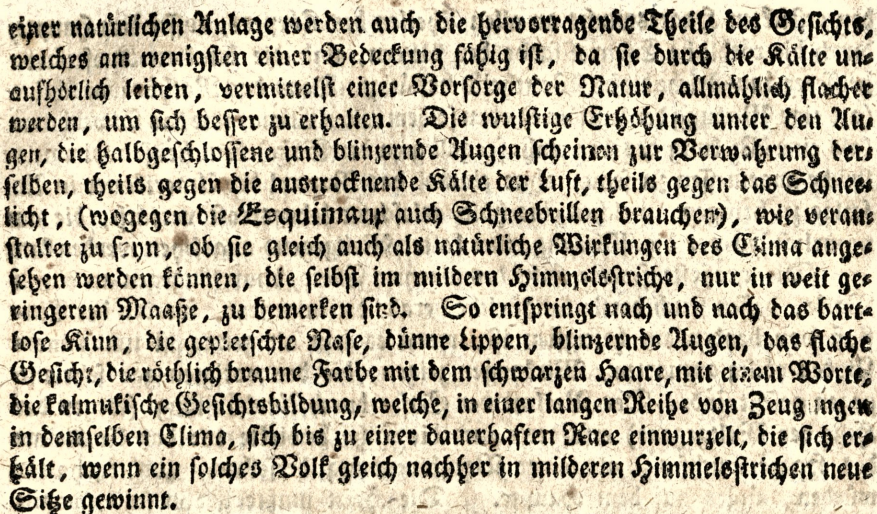 einer natürlichen Anlage werden auch die hervorragende Theile des Gesichts,
welches am wenigsten einer Bedeckung fähig ist, da sie durch die Kälte un-
aufhörlich leiden, vermittelst einer Vorsorge der Natur, allmählich flacher
werden, um sich besser zu erhalten. Die wulstige Erhöhung unter den Au-
gen, die halbgeschlossene und blinzernde Augen scheinen zur Verwahrung der-
selben, theils gegen die austrocknende Kälte der Luft, theils gegen das Schnee-
licht, (wogegen die Esquimaux auch Schneebrillen brauchen), wie veran-
staltet zu seyn, ob sie gleich auch als natürliche Wirkungen des Clima ange-
sehen werden können, die selbst im mildern Himmelsstriche, nur in weit ge-
ringerem Maaße, zu bemerken sind. So entspringt nach und nach das bart-
lose Kinn, die gepletschte Nase, dünne Lippen, blinzernde Augen, das flache
Gesicht, die röthlich braune Farbe mit dem schwarzen Haare, mit einem Worte,
die kalmukische Gesichtsbildung, welche, in einer langen Reihe von Zeugungen
in demselben Clima, sich bis zu einer dauerhaften Race einwurzelt, die sich er-
hält, wenn ein solches Volk gleich nachher in milderen Himmelsstrichen neue
Sitze gewinnt.